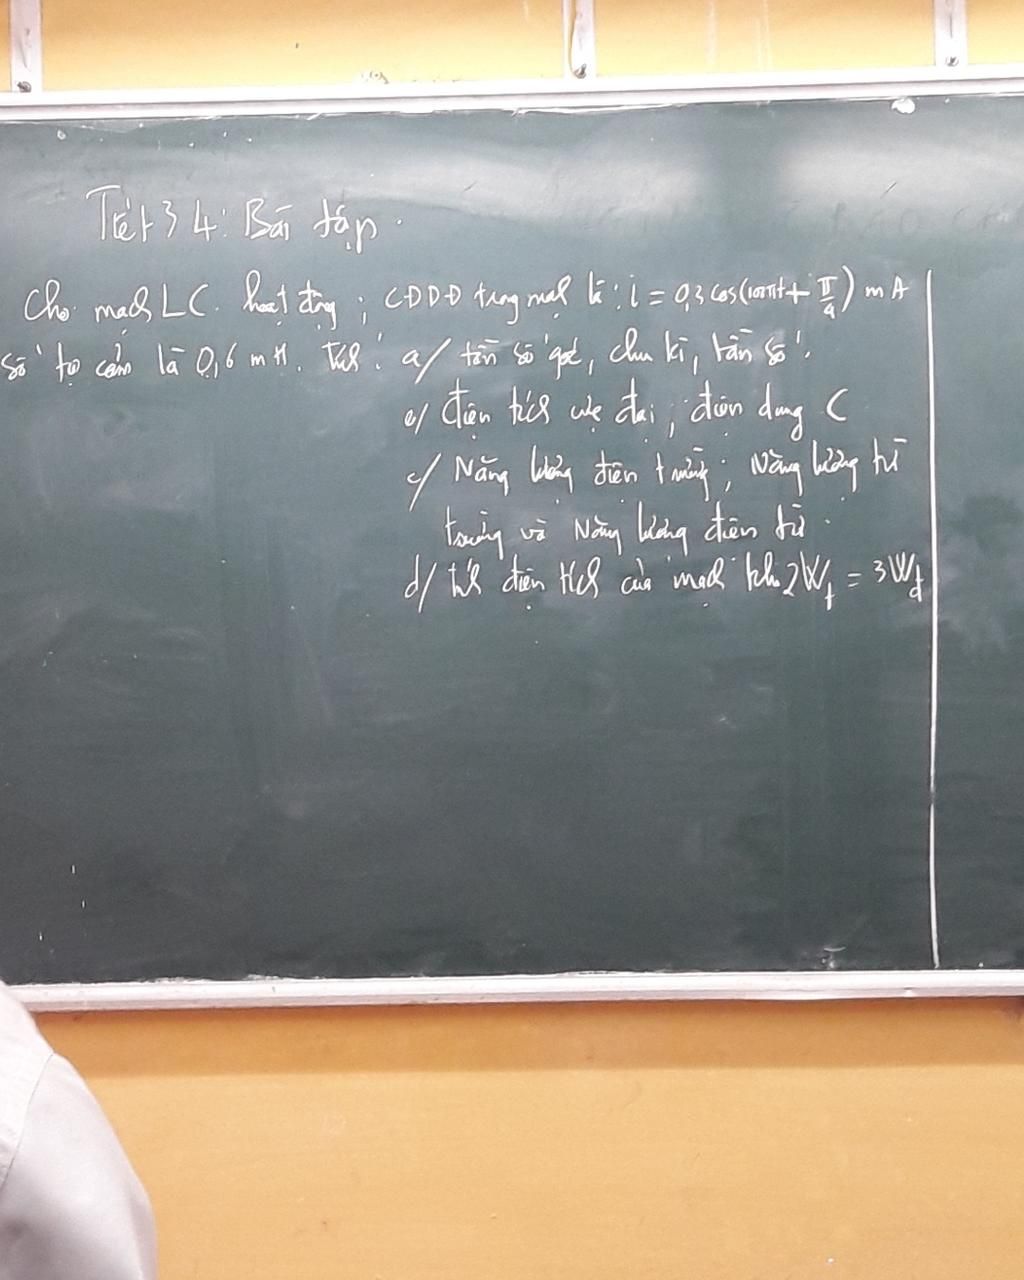 Tiết 34: Bài tập.
Cho mạch LC hoạt động; CĐDĐ trong mạch là: i = 0,3 cos(100πt + π/4) mA
số tự cảm là 0,6 mH. Tính: a/ tần số góc, chu kì, tần số.
b/ Điện tích cực đại; điện dung C
c/ Năng lượng điện trường; Năng lượng từ
trường và Năng lượng điện từ.
d/ tính điện tích của mạch khi 2Wt = 3Wđ